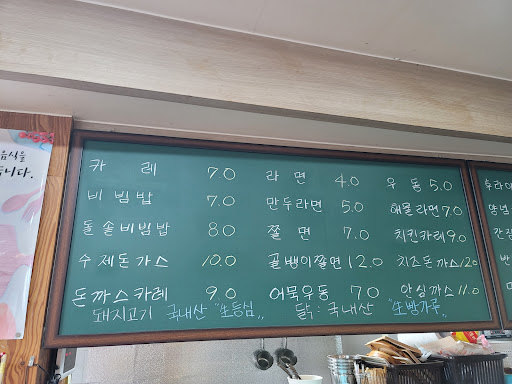 음식을
니다.
카레 7.0 라면 4.0 우동 5.0
비빔밥 7.0 만두라면 5.0 해물라면 7.0
돌솥비빔밥 8.0 쫄면 7.0 치킨카레 9.0
수제돈가스 10.0 골뱅이쫄면 12.0 치즈돈까스 12.0
돈까스카레 9.0 어묵우동 7.0 안심까스 11.0
돼지고기 국내산 "生등심" 닭: 국내산 "生빵가루"
후라이
양념
간장
반